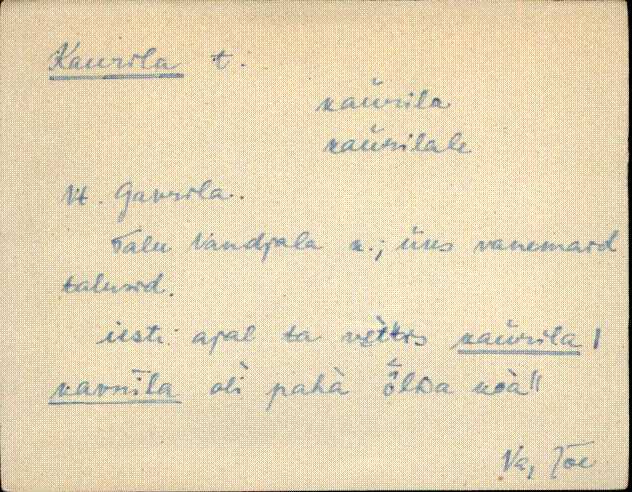 Kaurila t.
kaürila
kaürilale
Vt. Gavrila.
Talu Vandjala k.; üks vanemaid
talusid.
iesti ajal ta vèttis kaürila /
kavrila oli pahà õlDa koà"
Va, Jõe